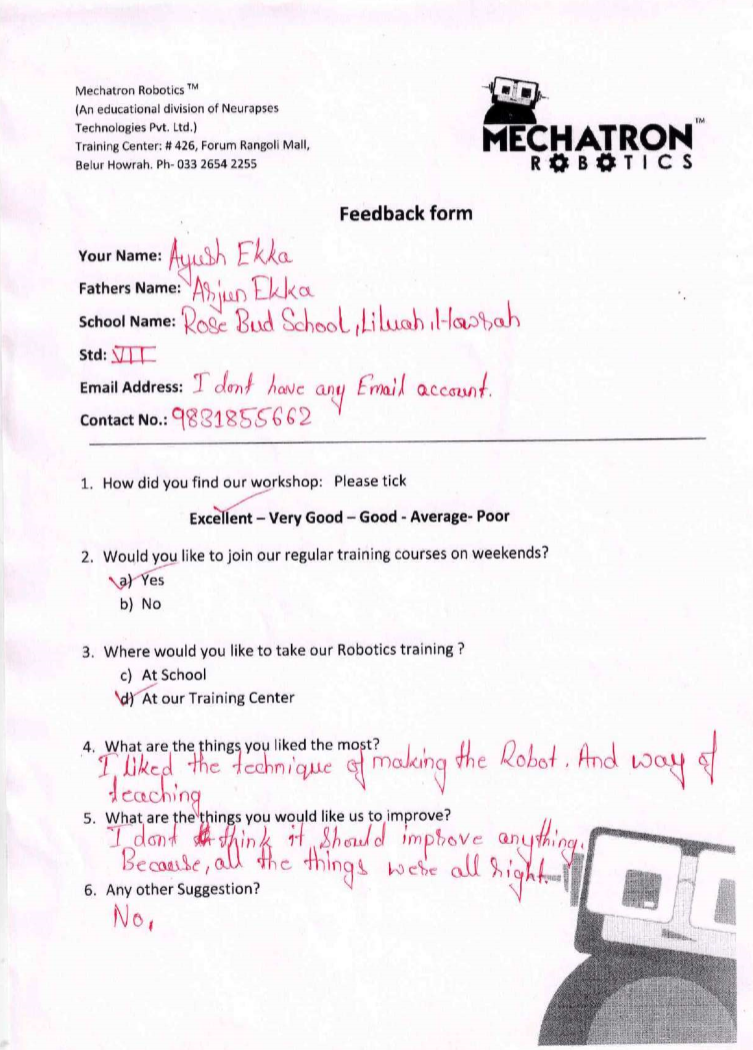 Mechatron Robotics ™
(An educational division of Neurapses
Technologies Pvt. Ltd.)
Training Center: # 426, Forum Rangoli Mall,
Belur Howrah. Ph- 033 2654 2255
MECHATRON ™
ROBOTICS
Feedback form
Your Name: Ayush Ekka
Fathers Name: Arjun Ekka
School Name: Rose Bud School, Liluah, Howrah
Std: VII
Email Address: I dont have any Email account.
Contact No.: 9831855662
1. How did you find our workshop: Please tick
Excellent – Very Good – Good - Average- Poor
2. Would you like to join our regular training courses on weekends?
a) Yes
b) No
3. Where would you like to take our Robotics training ?
c) At School
d) At our Training Center
4. What are the things you liked the most?
I liked the technique of making the Robot. And way of
teaching
5. What are the things you would like us to improve?
I dont think it should improve anything.
Because, all the things were all right.
6. Any other Suggestion?
No,